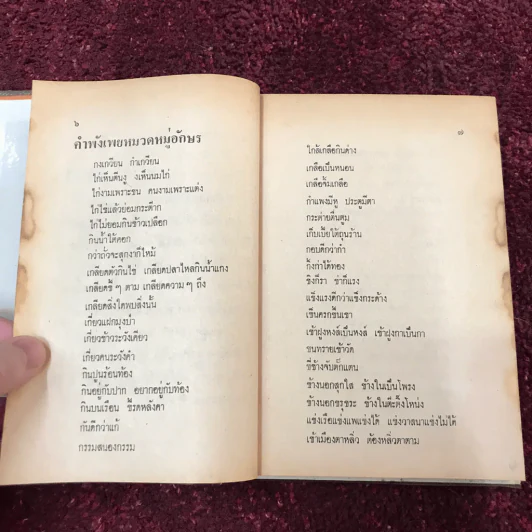 ๖
คำพังเพยหมวดหมู่อักษร
กงเกวียน กำเกวียน
ไก่เห็นตีนงู งูเห็นนมไก่
ไก่งามเพราะขน คนงามเพราะแต่ง
ไก่ไข่แล้วย่อมกระต๊าก
ไก่ไม่ยอมกินข้าวเปลือก
กินน้ำใต้ศอก
กว่าถั่วจะสุกงาก็ไหม้
เกลียดตัวกินไข่ เกลียดปลาไหลกินน้ำแกง
เกลียดขี้ ๆ ตาม เกลียดความ ๆ ถึง
เกลียดสิ่งใดพบสิ่งนั้น
เกี่ยวแฝกมุงป่า
เกี่ยวข้าวระวังเคียว
เกี้ยวคนระวังคำ
กินปูนร้อนท้อง
กินอยู่กับปาก อยากอยู่กับท้อง
กินบนเรือน ขี้รดหลังคา
กันดีกว่าแก้
กรรมสนองกรรม
๗
ใกล้เกลือกินด่าง
เกลือเป็นหนอน
เกลือจิ้มเกลือ
กำแพงมีหู ประตูมีตา
กระต่ายตื่นตูม
เก็บเบี้ยใต้ถุนร้าน
กอบดีกว่ากำ
กิ้งก่าได้ทอง
ขิงก็รา ข่าก็แรง
แข็งแรงดีกว่าแข็งกระด้าง
เข็นครกขึ้นเขา
เข้าฝูงหงส์เป็นหงส์ เข้าฝูงกาเป็นกา
ขนทรายเข้าวัด
ขี่ช้างจับตั๊กแตน
ข้างนอกสุกใส ข้างในเป็นโพรง
ข้างนอกขรุขระ ข้างในต๊ะติ๊งโหน่ง
แข่งเรือแข่งแพแข่งได้ แข่งวาสนาแข่งไม่ได้
เข้าเมืองตาหลิ่ว ต้องหลิ่วตาตาม